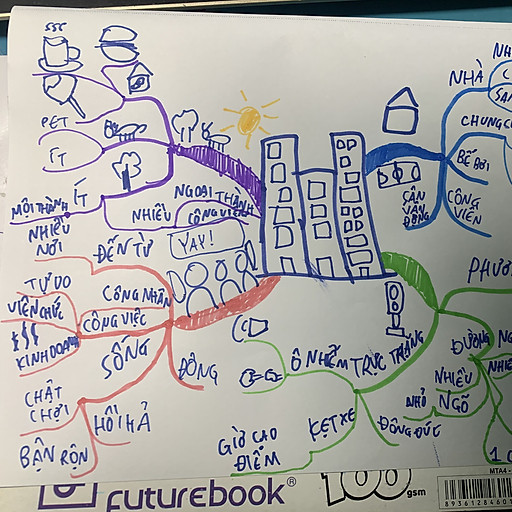 PET
ÍT
ÍT
MỗI THÀNH
NHIỀU
NGOẠI THÀNH
CÔNG VIÊN
YAY!
NHIỀU
NƠI
ĐẾN TỪ
TỰ DO
VIÊN CHỨC
KINH DOANH
CÔNG NHÂN
CÔNG VIỆC
SỐNG
ĐÔNG
CHẬT
CHỘI
HỐI HẢ
BẬN RỘN
NHÀ
CHUNG C
BÊ ĐÔI
SÂN
VẬN
ĐỘNG
CÔNG
VIÊN
PHƯƠ
ĐƯỜNG
NHIỀU
NGÕ
NHỎ
ĐÔNG ĐÚC
Ô NHIỄM TRỰC TRẶNG
KẸT XE
GIỜ CAO
ĐIỂM
futurebook®
100 gsm
MTA4